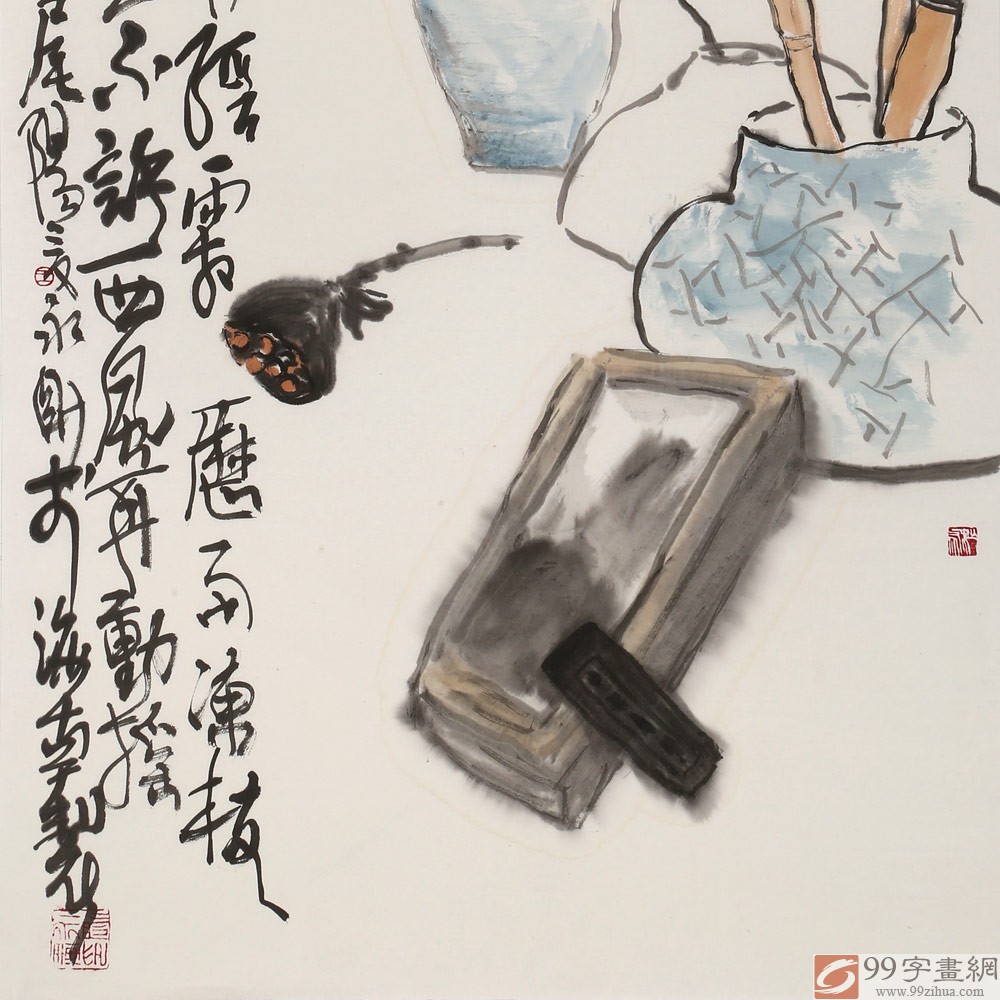 經霜歷雨凍枝
不許西風再動搖
尾陽永剛於海南製
99字畫網
www.99zihua.com